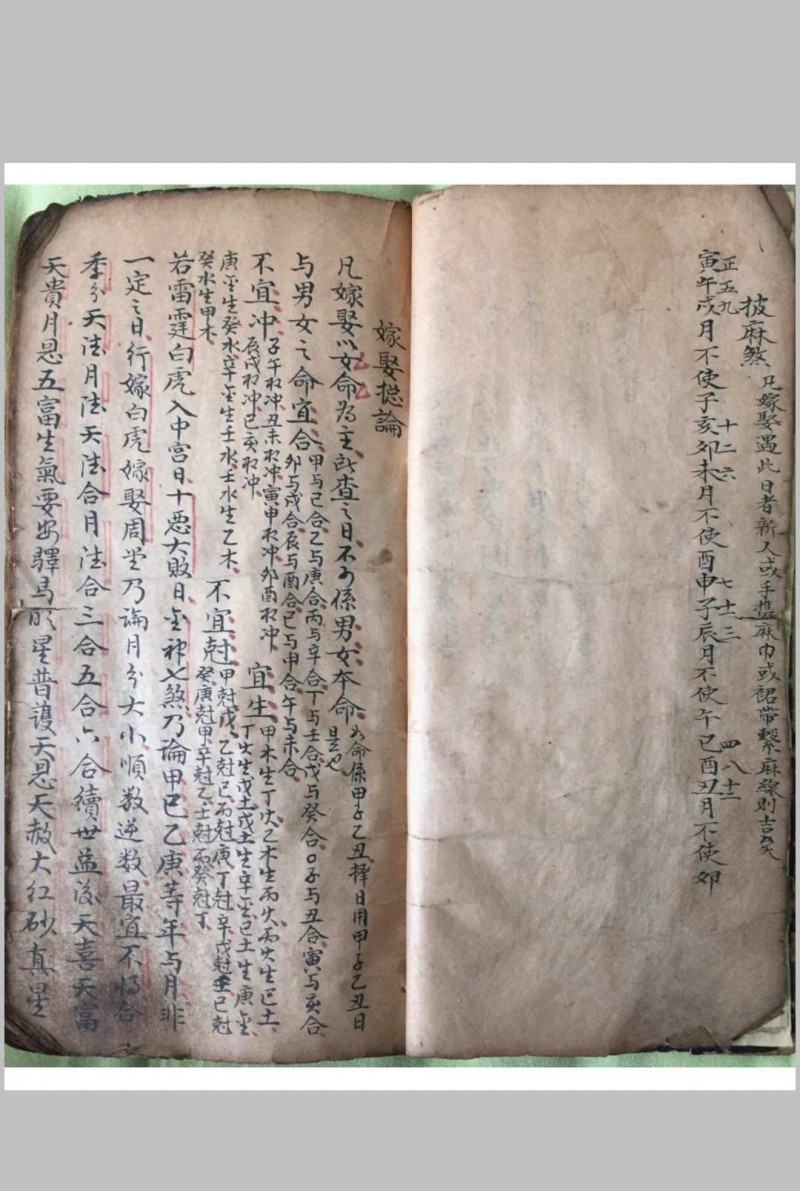 披麻煞 凡嫁娶遇此日者新人或手携麻巾或裙带繫麻線則吉矣
正五九 十二六 七十三 四八十二
寅午戌月不使子亥卯未月不使酉申子辰月不使午巳酉丑月不使卯
嫁娶揔論
凡嫁娶以女命為主既查之日不可係男女本命 如命係甲子乙丑擇日用甲子乙丑日
是也
与男女之命宜合 甲与己合乙与庚合丙与辛合丁与壬合戊与癸合〇子与丑合寅与亥合
卯与戌合辰与酉合巳与申合午与未合
不宜冲 子午相冲丑未相冲寅申相冲卯酉相冲
辰戌相冲巳亥相冲
宜生 甲木生丁火乙木生丙火丙火生己土
丁火生戊土戊土生辛金己土生庚金
庚金生癸水辛金生壬水壬水生乙木
癸水生甲木
不宜尅 甲尅戊乙尅己丙尅庚丁尅辛戊尅壬己尅
癸庚尅甲辛尅乙壬尅丙癸尅丁
若雷霆白虎入中宫日十悪大敗日金神七煞乃論甲己乙庚等年与月非
一定之日行嫁白虎嫁娶周堂乃論月分大小順数逆数最宜不将合
季分天德月德天德合月德合三合五合六合續世益後天喜天富
天貴月恩五富生氣要安驛馬明星普護天恩天赦大红砂真星